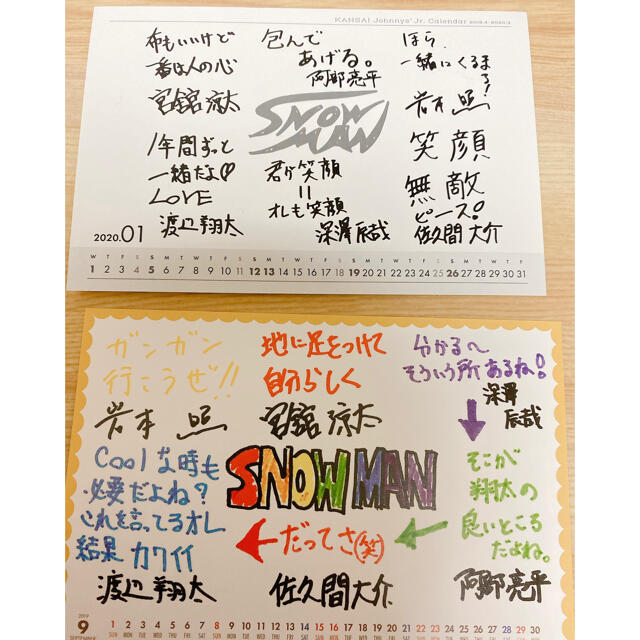 KANSAI Johnnys' Jr. Calendar 2019.4-2020.3
布もいいけど
着は人の心
宮舘涼太
包んで
あげる。
阿部亮平
ほら、
一緒にくるまろ!
岩本 照
SNOW
MAN
1年間ずっと
一緒だよ♡
LOVE
渡辺翔太
君が笑顔
=
オレも笑顔
深澤辰哉
笑顔
無敵
ピース!
佐久間大介
2020.01
W T F S S M T W T F S S M T W T F S S M T W T F S S M T W T F
1 2 3 4 5 6 7 8 9 10 11 12 13 14 15 16 17 18 19 20 21 22 23 24 25 26 27 28 29 30 31
ガンガン
行こうぜ!!
岩本 照
地に足をつけて
自分らしく
宮舘涼太
分かる〜
そういう所あるね!
深澤
辰哉
Coolな時も
必要だよね?
これを言ってるオレ
結果カワイイ
渡辺翔太
SNOW MAN
← だってさ(笑) ←
佐久間大介
そこが
翔太の
良いところ
だよね。
阿部亮平
2019
9
SEPTEMBER
1 2 3 4 5 6 7 8 9 10 11 12 13 14 15 16 17 18 19 20 21 22 23 24 25 26 27 28 29 30
SUN MON TUE WED THU FRI SAT SUN MON TUE WED THU FRI SAT SUN MON TUE WED THU FRI SAT SUN MON TUE WED THU FRI SAT SUN MON